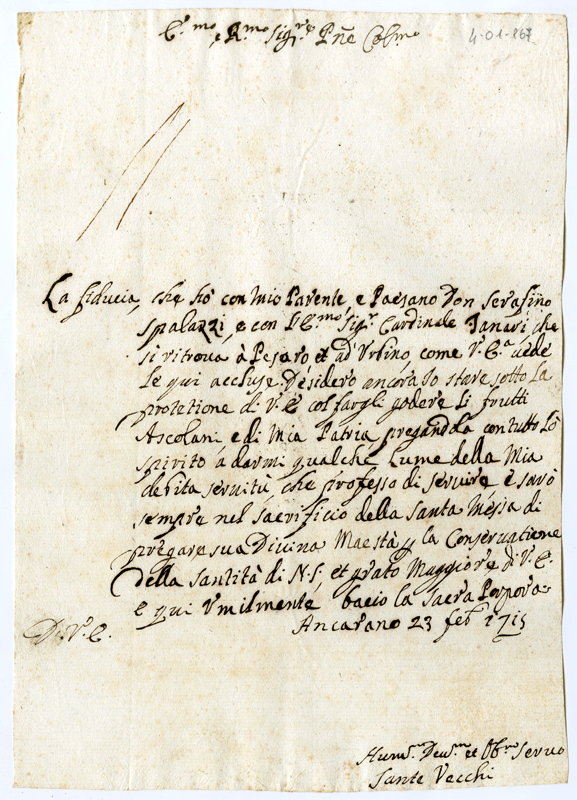 E.mo e R.mo Sig.re Pñe Col.mo
4-01-867
La fiducia, che hò con mio Parente e Paesano Don Serafino
Spalazzi, e con l'E.mo Sig.r Cardinale Tanari che
si ritroua à Pesaro et ad Vrbino, come V.E.a uede
le qui accluse. Desidero ancora Io stare sotto la
protetione di V.E. col fargli godere li frutti
Ascolani e di Mia Patria pregandola con tutto lo
spirito à darmi qualche Lume della Mia
deuita seruitù, che professo di seruire e sarò
sempre nel Sacrificio della Santa Messa di
pregare sua Diuina Maestà p la Conseruatione
della Santità di N.S, et grato Maggiore di V.E.
e qui Vmilmente bacio la Sacra Porpora
Di V.E.
Ancarano 23 feb 1715
Hum.mo Deu.mo et Obb.mo Seruo
Sante Vecchi